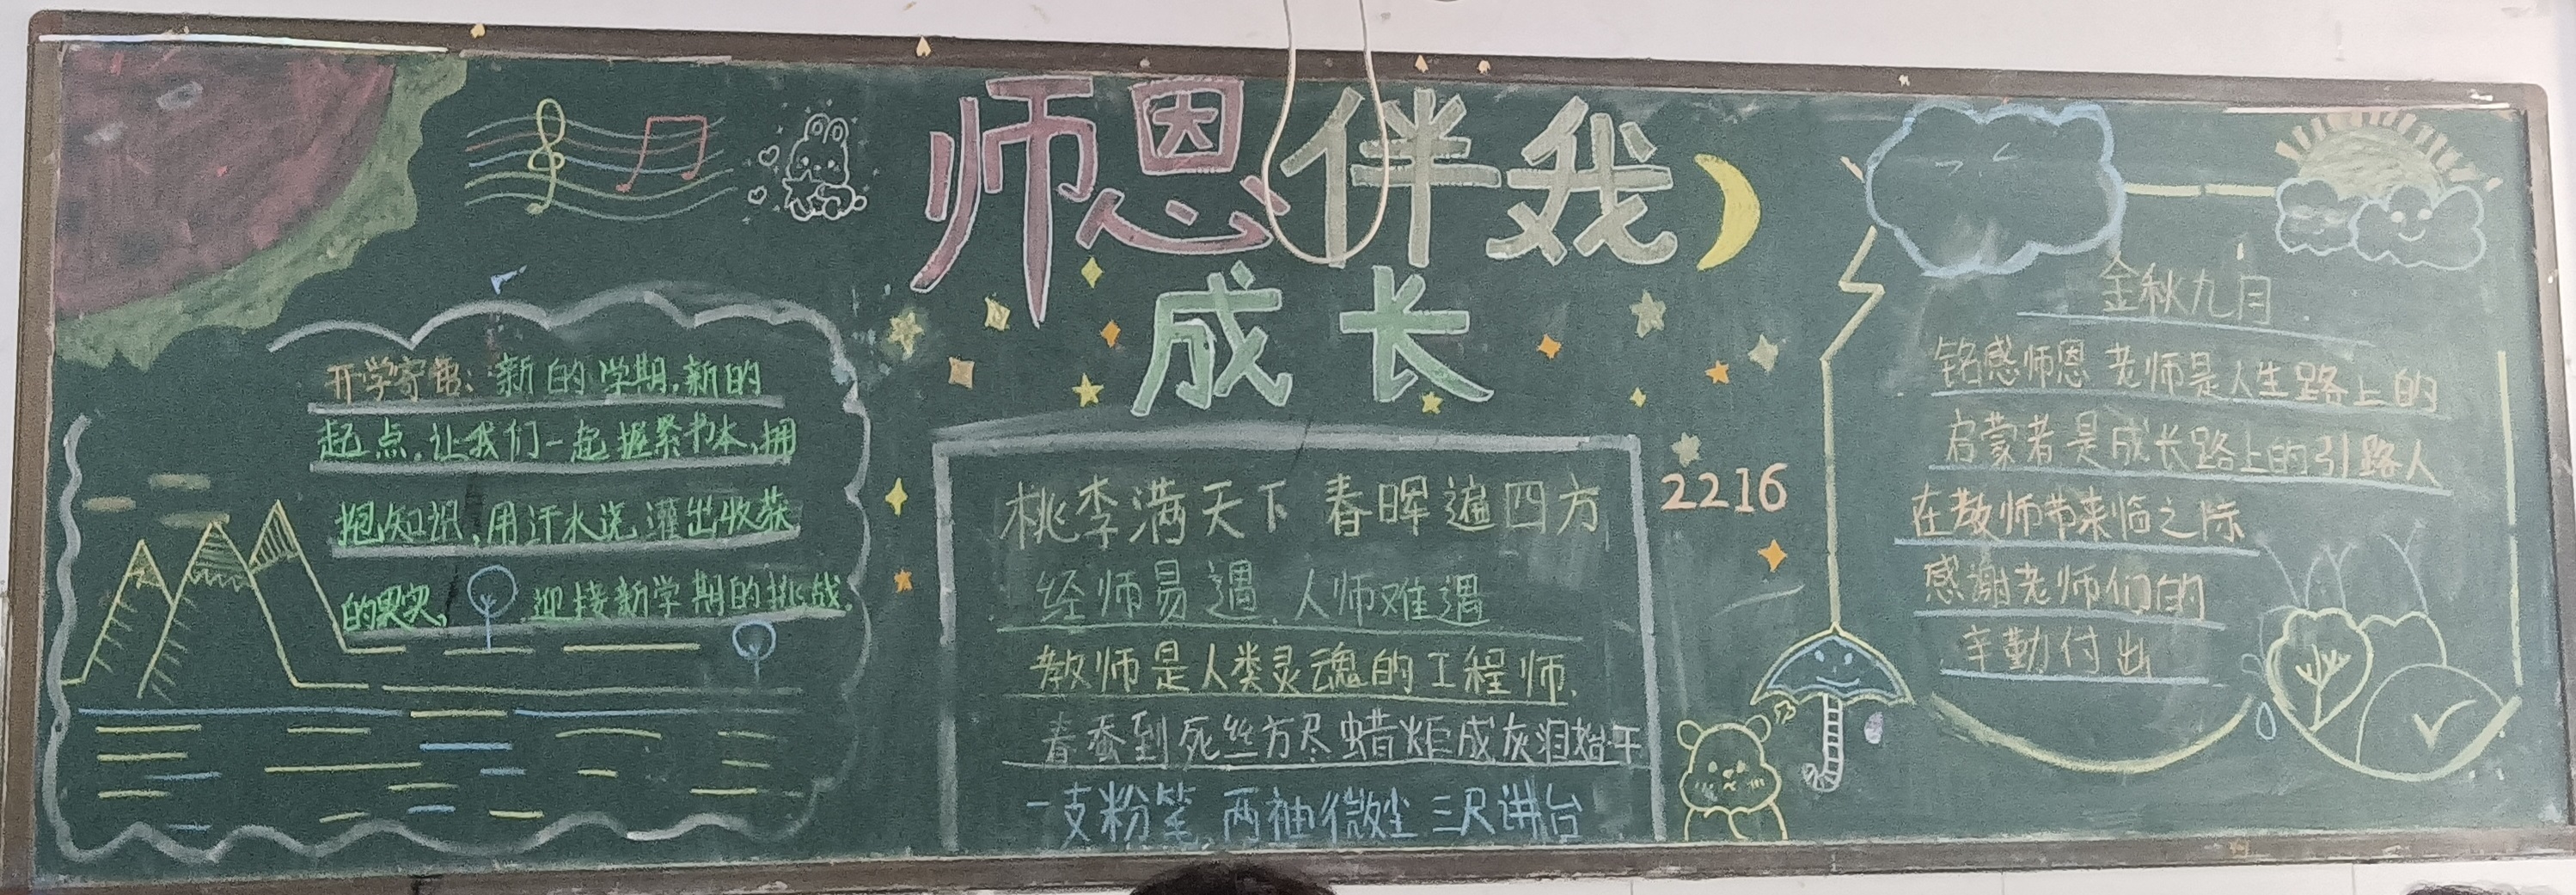 师恩伴我
成长
开学寄语：新的学期，新的
起点，让我们一起握紧书本，拥
抱知识，用汗水浇灌出收获
的果实，迎接新学期的挑战。
桃李满天下 春晖遍四方
经师易遇，人师难遇
教师是人类灵魂的工程师，
春蚕到死丝方尽蜡炬成灰泪始干
一支粉笔，两袖微尘 三尺讲台
2216
金秋九月
铭感师恩 老师是人生路上的
启蒙者是成长路上的引路人
在教师节来临之际
感谢老师们的
辛勤付出